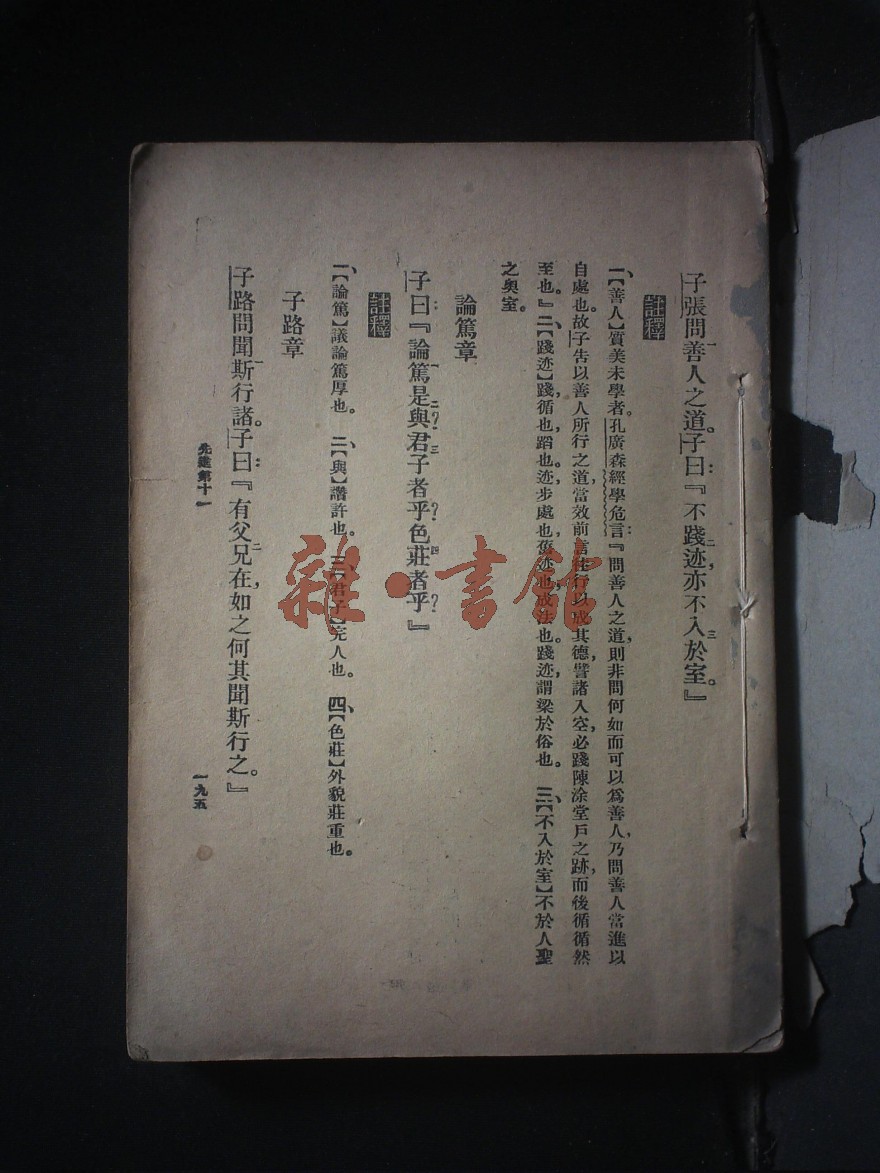 子張問善人之道。子曰：『不踐迹，亦不入於室。』
註釋
一、【善人】質美未學者。孔廣森經學危言：『問善人之道，則非問何如而可以爲善人，乃問善人當進以
自處也。故子告以善人所行之道，當效前言往行以成其德，譬諸入室，必踐陳涂堂戶之跡，而後循循然
至也。』二、【踐迹】踐，循也，蹈也。迹，步處也，舊迹也，成法也。踐迹，謂梁於俗也。三、【不入於室】不於人聖
之奧室。
論篤章
子曰：『論篤是與？君子者乎？色莊者乎？』
註釋
一、【論篤】議論篤厚也。二、【與】讚許也。三、【君子】完人也。四、【色莊】外貌莊重也。
子路章
子路問聞斯行諸。子曰：『有父兄在，如之何其聞斯行之。』
先進第十一
一九五
雜·書館